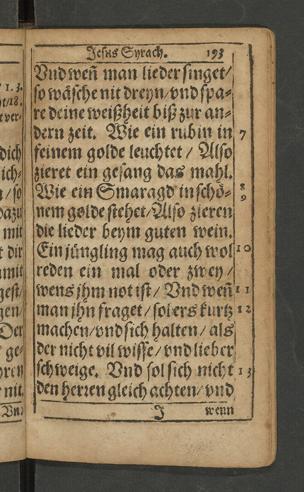 Jesus Syrach. 193
Vnd weñ man lieder singet/
so wäsche nit dreyn/ vnd spa-
re deine weißheit biß zur an-
dern zeit. Wie ein rubin in 7
feinem golde leuchtet / Also
zieret ein gesang das mahl. 8
Wie ein Smaragd in schö- 9
nem golde stehet/ Also zieren
die lieder beym guten wein.
Ein jüngling mag auch wol 10
reden ein mal oder zwey/
wens jhm not ist/ Vnd weñ 11
man jhn fraget/ sol ers kurtz 12
machen/ vnd sich halten/ als
der nicht vil wisse/ vnd lieber
schweige. Vnd sol sich nicht 13
den herren gleich achten/ vnd
J wenn
dich
mit